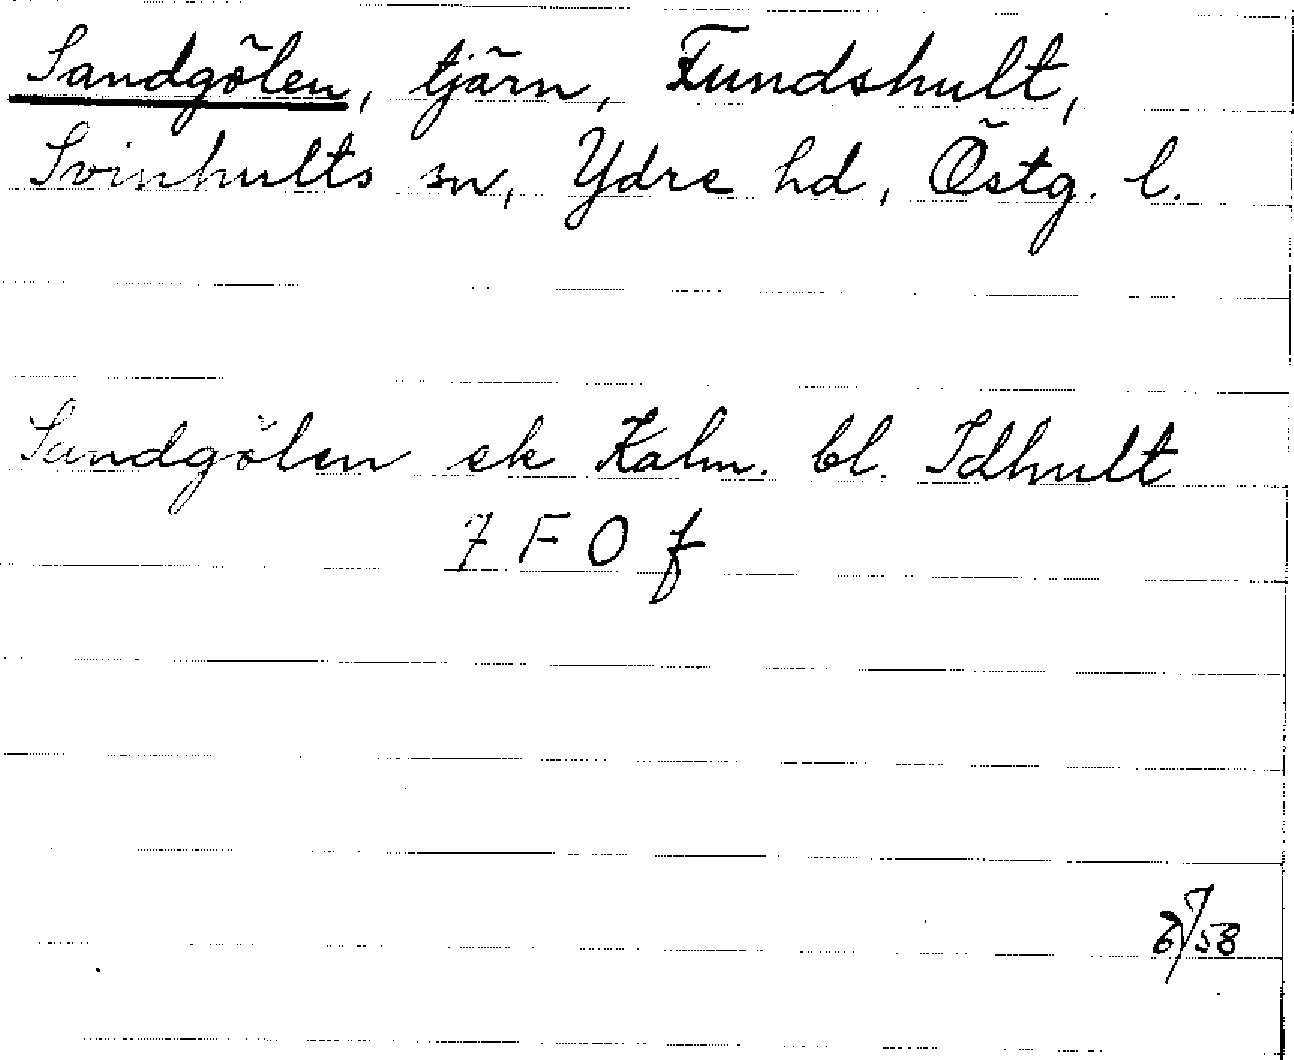 Sandgölen, tjärn, Fundshult,
Svinhults sn, Ydre hd, Östg. l.
Sandgölen ek Kalm. bl. Idhult
7 F O f